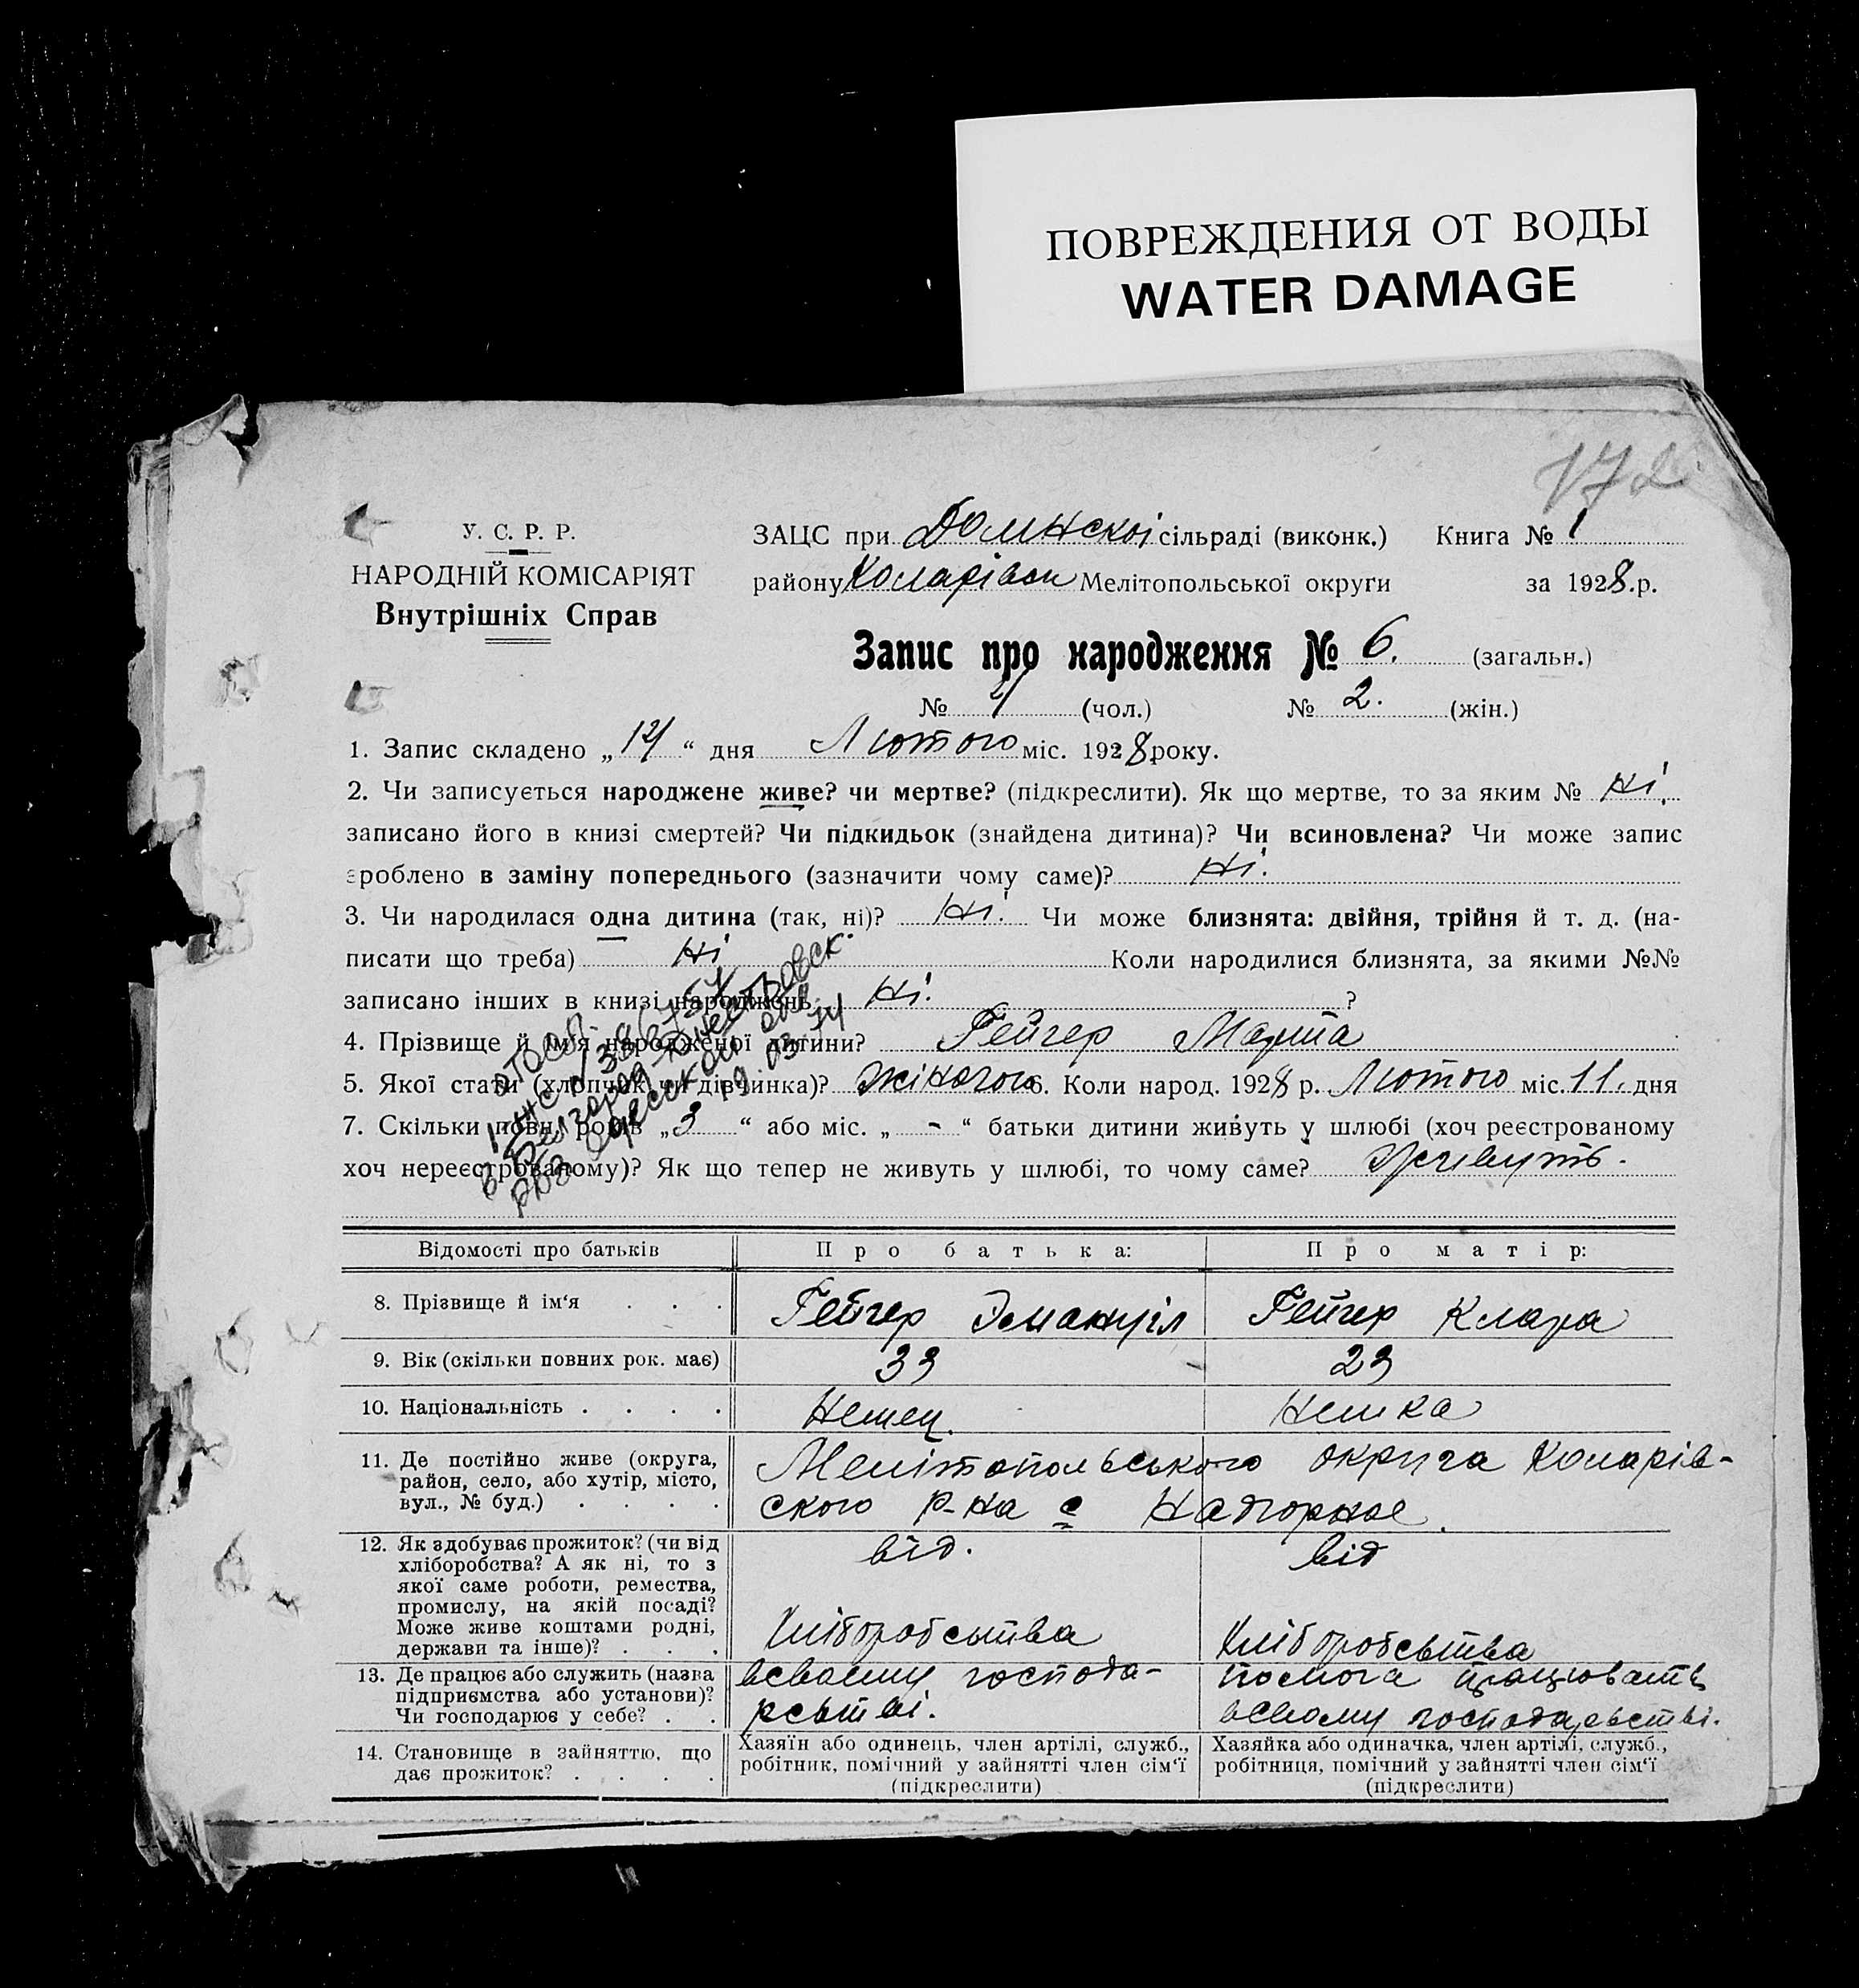 ПОВРЕЖДЕНИЯ ОТ ВОДЫ
WATER DAMAGE
172
У. С. Р. Р.
НАРОДНІЙ КОМІСАРІЯТ
Внутрішніх Справ
ЗАЦС при Долинскоі сільраді (виконк.) Книга № 1
району Коларівск Мелітопольської округи за 1928.р.
Запис про народження № 6. (загальн.)
№ 4 (чол.) № 2. (жін.)
1. Запис складено „14“ дня Лютого міс. 1928 року.
2. Чи записується народжене живе? чи мертве? (підкреслити). Як що мертве, то за яким № Ні.
записано його в книзі смертей? Чи підкидьок (знайдена дитина)? Чи всиновлена? Чи може запис
зроблено в заміну попереднього (зазначити чому саме)? Ні.
3. Чи народилася одна дитина (так, ні)? Ні. Чи може близнята: двійня, трійня й т. д. (на-
писати що треба) Ні Коли народилися близнята, за якими №№
записано інших в книзі народжень Ні. ?
4. Прізвище й ім'я народженої дитини? Гейгер Марта
5. Якої стати (хлопчик чи дівчинка)? Жіночого 6. Коли народ. 1928 р. Лютого міс. 11. дня
7. Скільки повн. років „3“ або міс. „-“ батьки дитини живуть у шлюбі (хоч реєстрованому
хоч нереєстрованому)? Як що тепер не живуть у шлюбі, то чому саме? Живуть.
Белгород-Днестровск.
Одесской обл
Відомості про батьків Про батька: Про матір:
8. Прізвище й ім'я . . . Гейгер Эмануіл Гейгер Клара
9. Вік (скільки повних рок. має) 33 23
10. Національність . . . . Немец. Немка
11. Де постійно живе (округа,
район, село, або хутір, місто,
вул., № буд.) . . . .
Мелітопольського округа Коларів-
ского р-на с Нагорное.
12. Як здобуває прожиток? (чи від
хліборобства? А як ні, то з
якої саме роботи, ремества,
промислу, на якій посаді?
Може живе коштами родні,
держави та інше)? . . .
від. від
Хліборобсьтва Хліборобсьтва
13. Де працює або служить (назва
підприємства або установи)?
Чи господарює у себе? . .
всвоєму господа-
рсьтві.
помога працювать
всвому господарьстві.
14. Становище в зайняттю, що
дає прожиток? . . . .
Хазяїн або одинець, член артілі, служб.,
робітник, помічний у зайнятті член сім'ї
(підкреслити)
Хазяйка або одиначка, член артілі, служб.,
робітниця, помічний у зайнятті член сім'ї
(підкреслити)